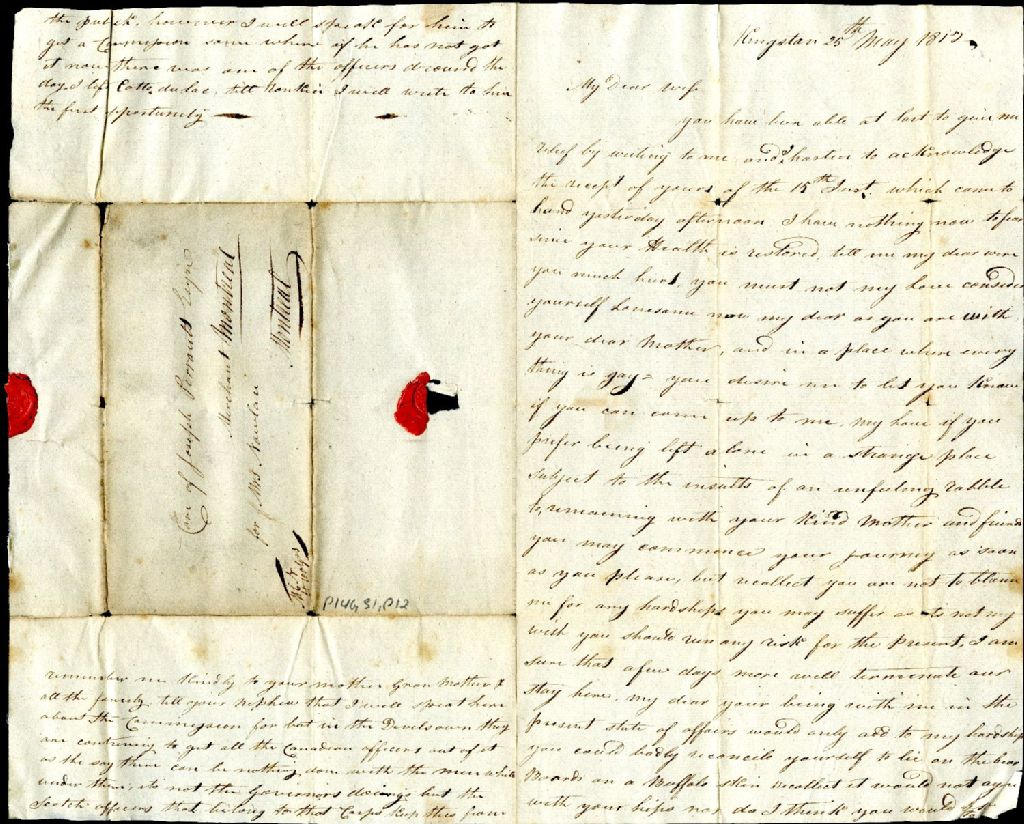 Kingston 25th May 1812.
My Dear wife
you have been able at last to give me
relief by writing to me and I hasten to acknowledge
the receipt of yours of the 15th Inst. which came to
hand yesterday afternoon I have nothing now to fear
since your Health is restored, tell me my dear were
you much hurt, you must not my love consider
yourself lonesome now my dear as you are with
your dear Mother, and in a place where every
thing is gay = you desire me to let you know
if you can come up to me, my love if you
prefer being left alone in a strange place
subject to the insults of an unfeeling rabble
to remaining with your kind Mother and friends
you may commence your journey as soon
as you please, but recollect you are not to blame
me for any hardships you may suffer as to not my
wish you should run any risk for the present, I am
sure that a few days more will terminate our
stay here. my dear your being with me in the
present state of affairs would only add to my hardships
you could badly reconcile yourself to lie on the bear
Boards on a Buffalo skin recollect it would not agree
with your hips nor do I think you would
remember me kindly to your mother Gran Mother &
all the family. tell your Nephew that I will speak here
about the Commission for but in the Devils own they
are contriving to get all the Canadian officers out of it
as the say there can be nothing done with the men while
under them, its not the Governors doings but the
Scotch officers that belong to that Corps keep this from
the publick, however I will speak for him to
get a Commission some where if he has not got
it now there was one of the officers drowned the
day I left Coteau du lac, tell him I will write to him
the first opportunity
Care of Joseph Perrault Esqre
Merchant Montreal
for Mrs
Montreal
P14G, 31, P12